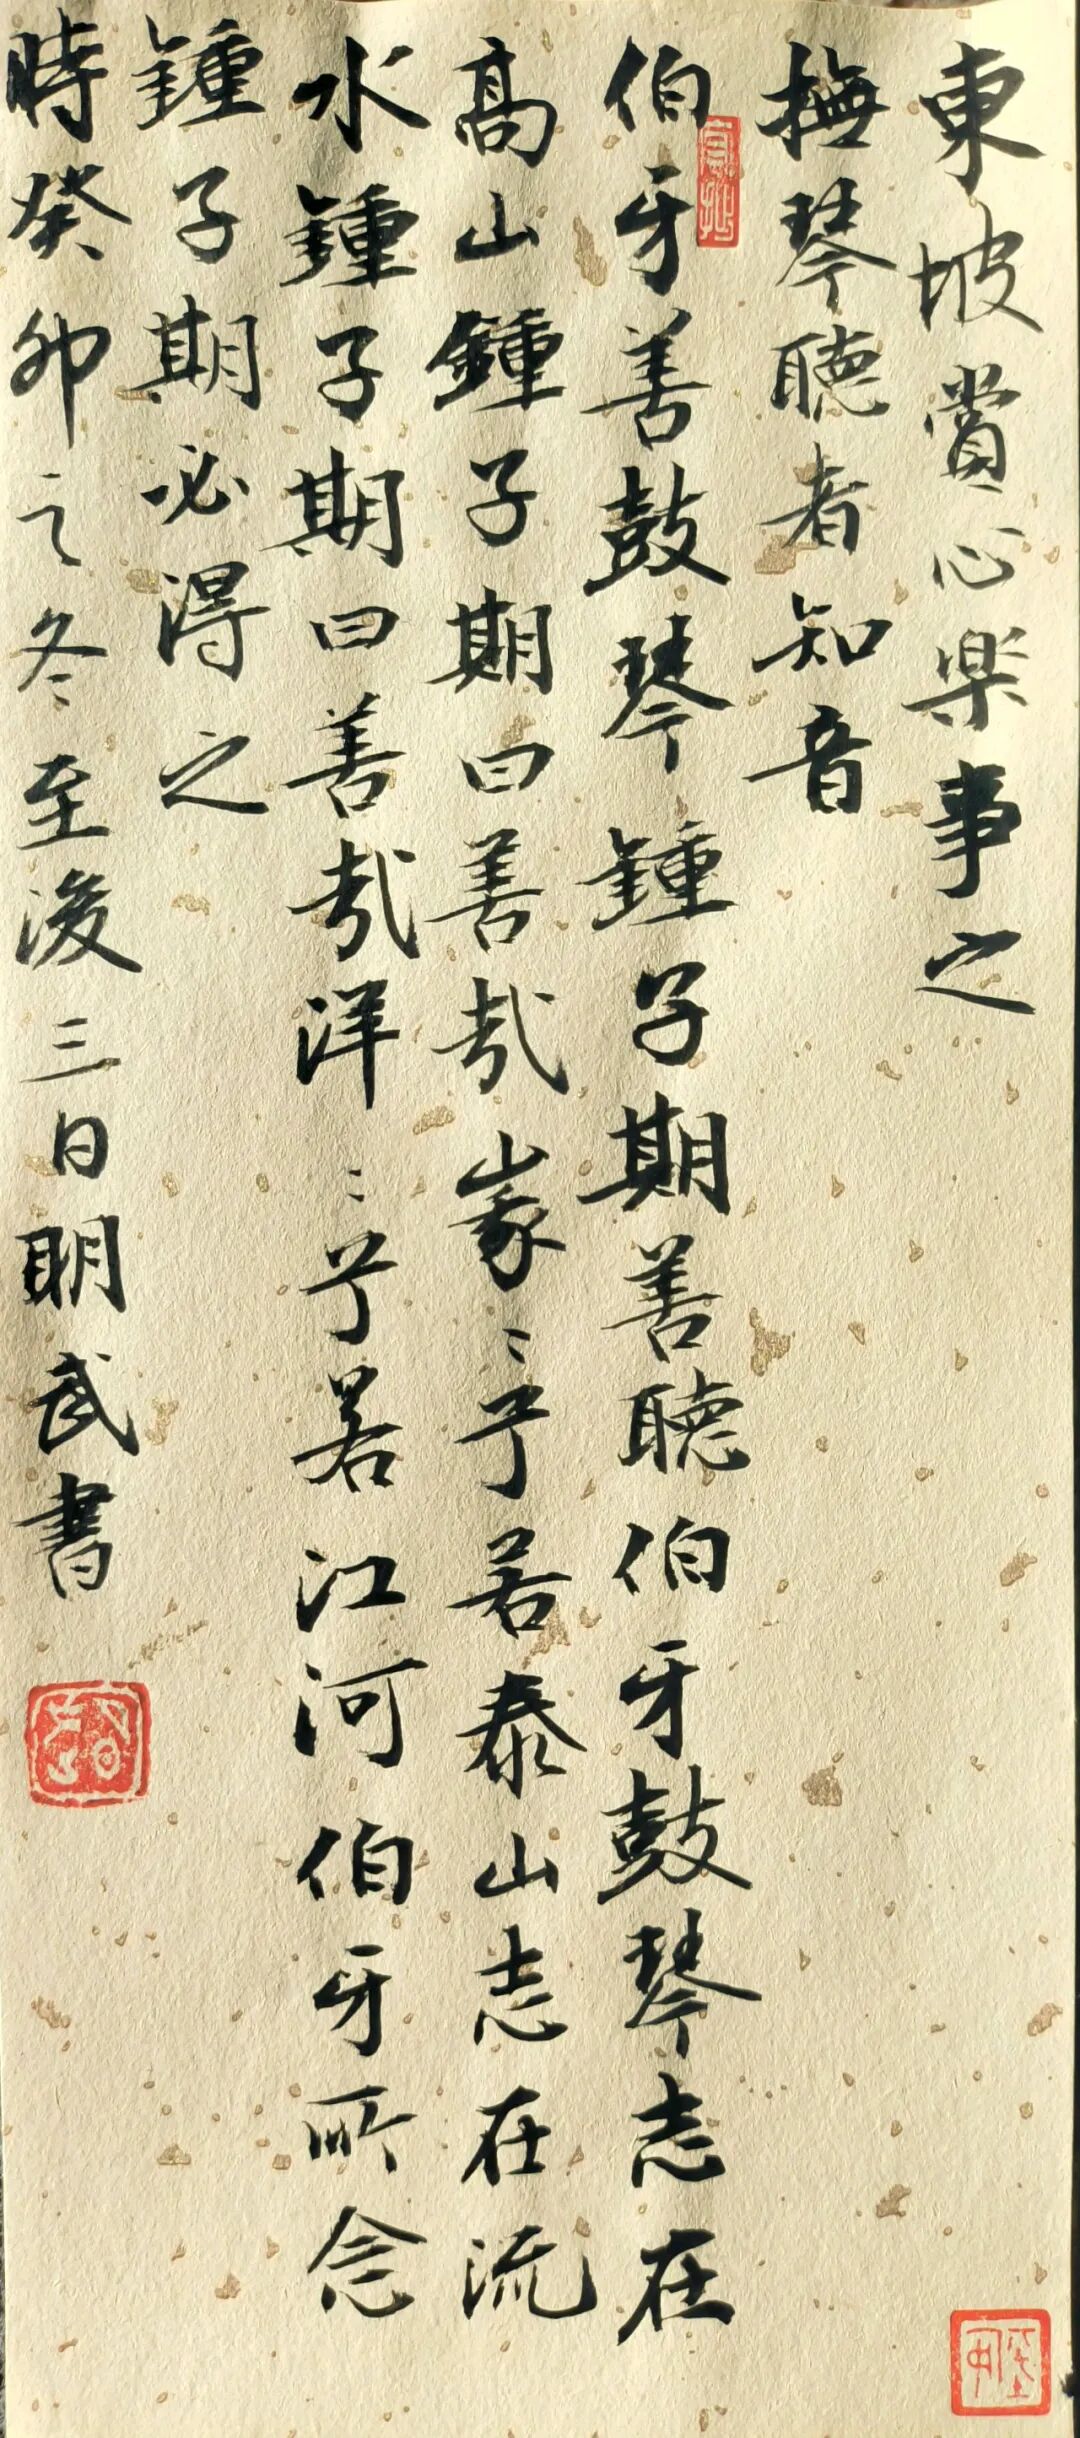 東坡賞心樂事之
撫琴聽者知音
伯牙善鼓琴鍾子期善聽伯牙鼓琴志在
高山鍾子期曰善哉峩〻兮若泰山志在流
水鍾子期曰善哉洋〻兮若江河伯牙所念
鍾子期必得之
時癸卯之冬至後三日明武書